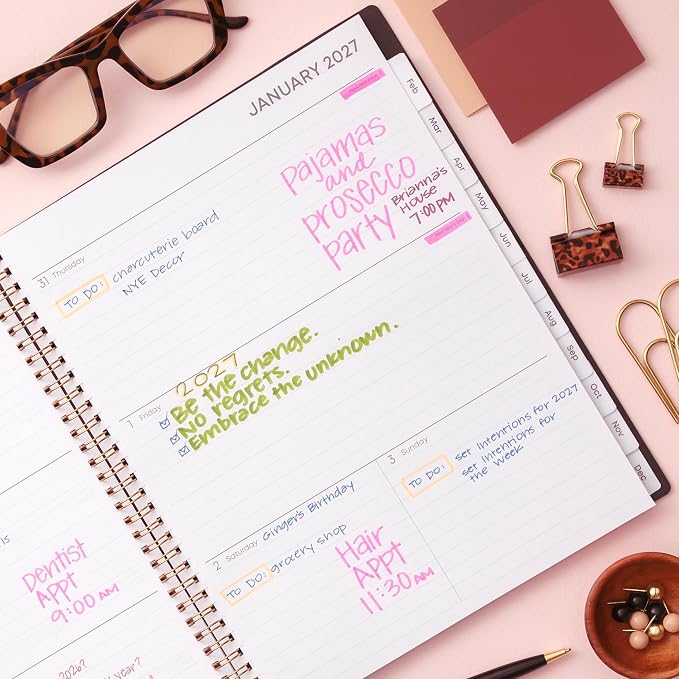 JANUARY 2027
Feb
Mar
Apr
May
Jun
Jul
Aug
Sep
Oct
Nov
Dec
31 Thursday
TO DO: charcuterie board
NYE Decor
Pajamas
and
prosecco
party
Brianna's
House
7:00 PM
1 Friday
2027
Be the change.
No regrets.
Embrace the unknown.
2 Saturday Ginger's Birthday
TO DO: grocery shop
Hair
Appt
11:30 AM
3 Sunday
TO DO: set intentions for 2027
set intentions for
the week
Dentist
Appt
9:00 AM
2026?
year?